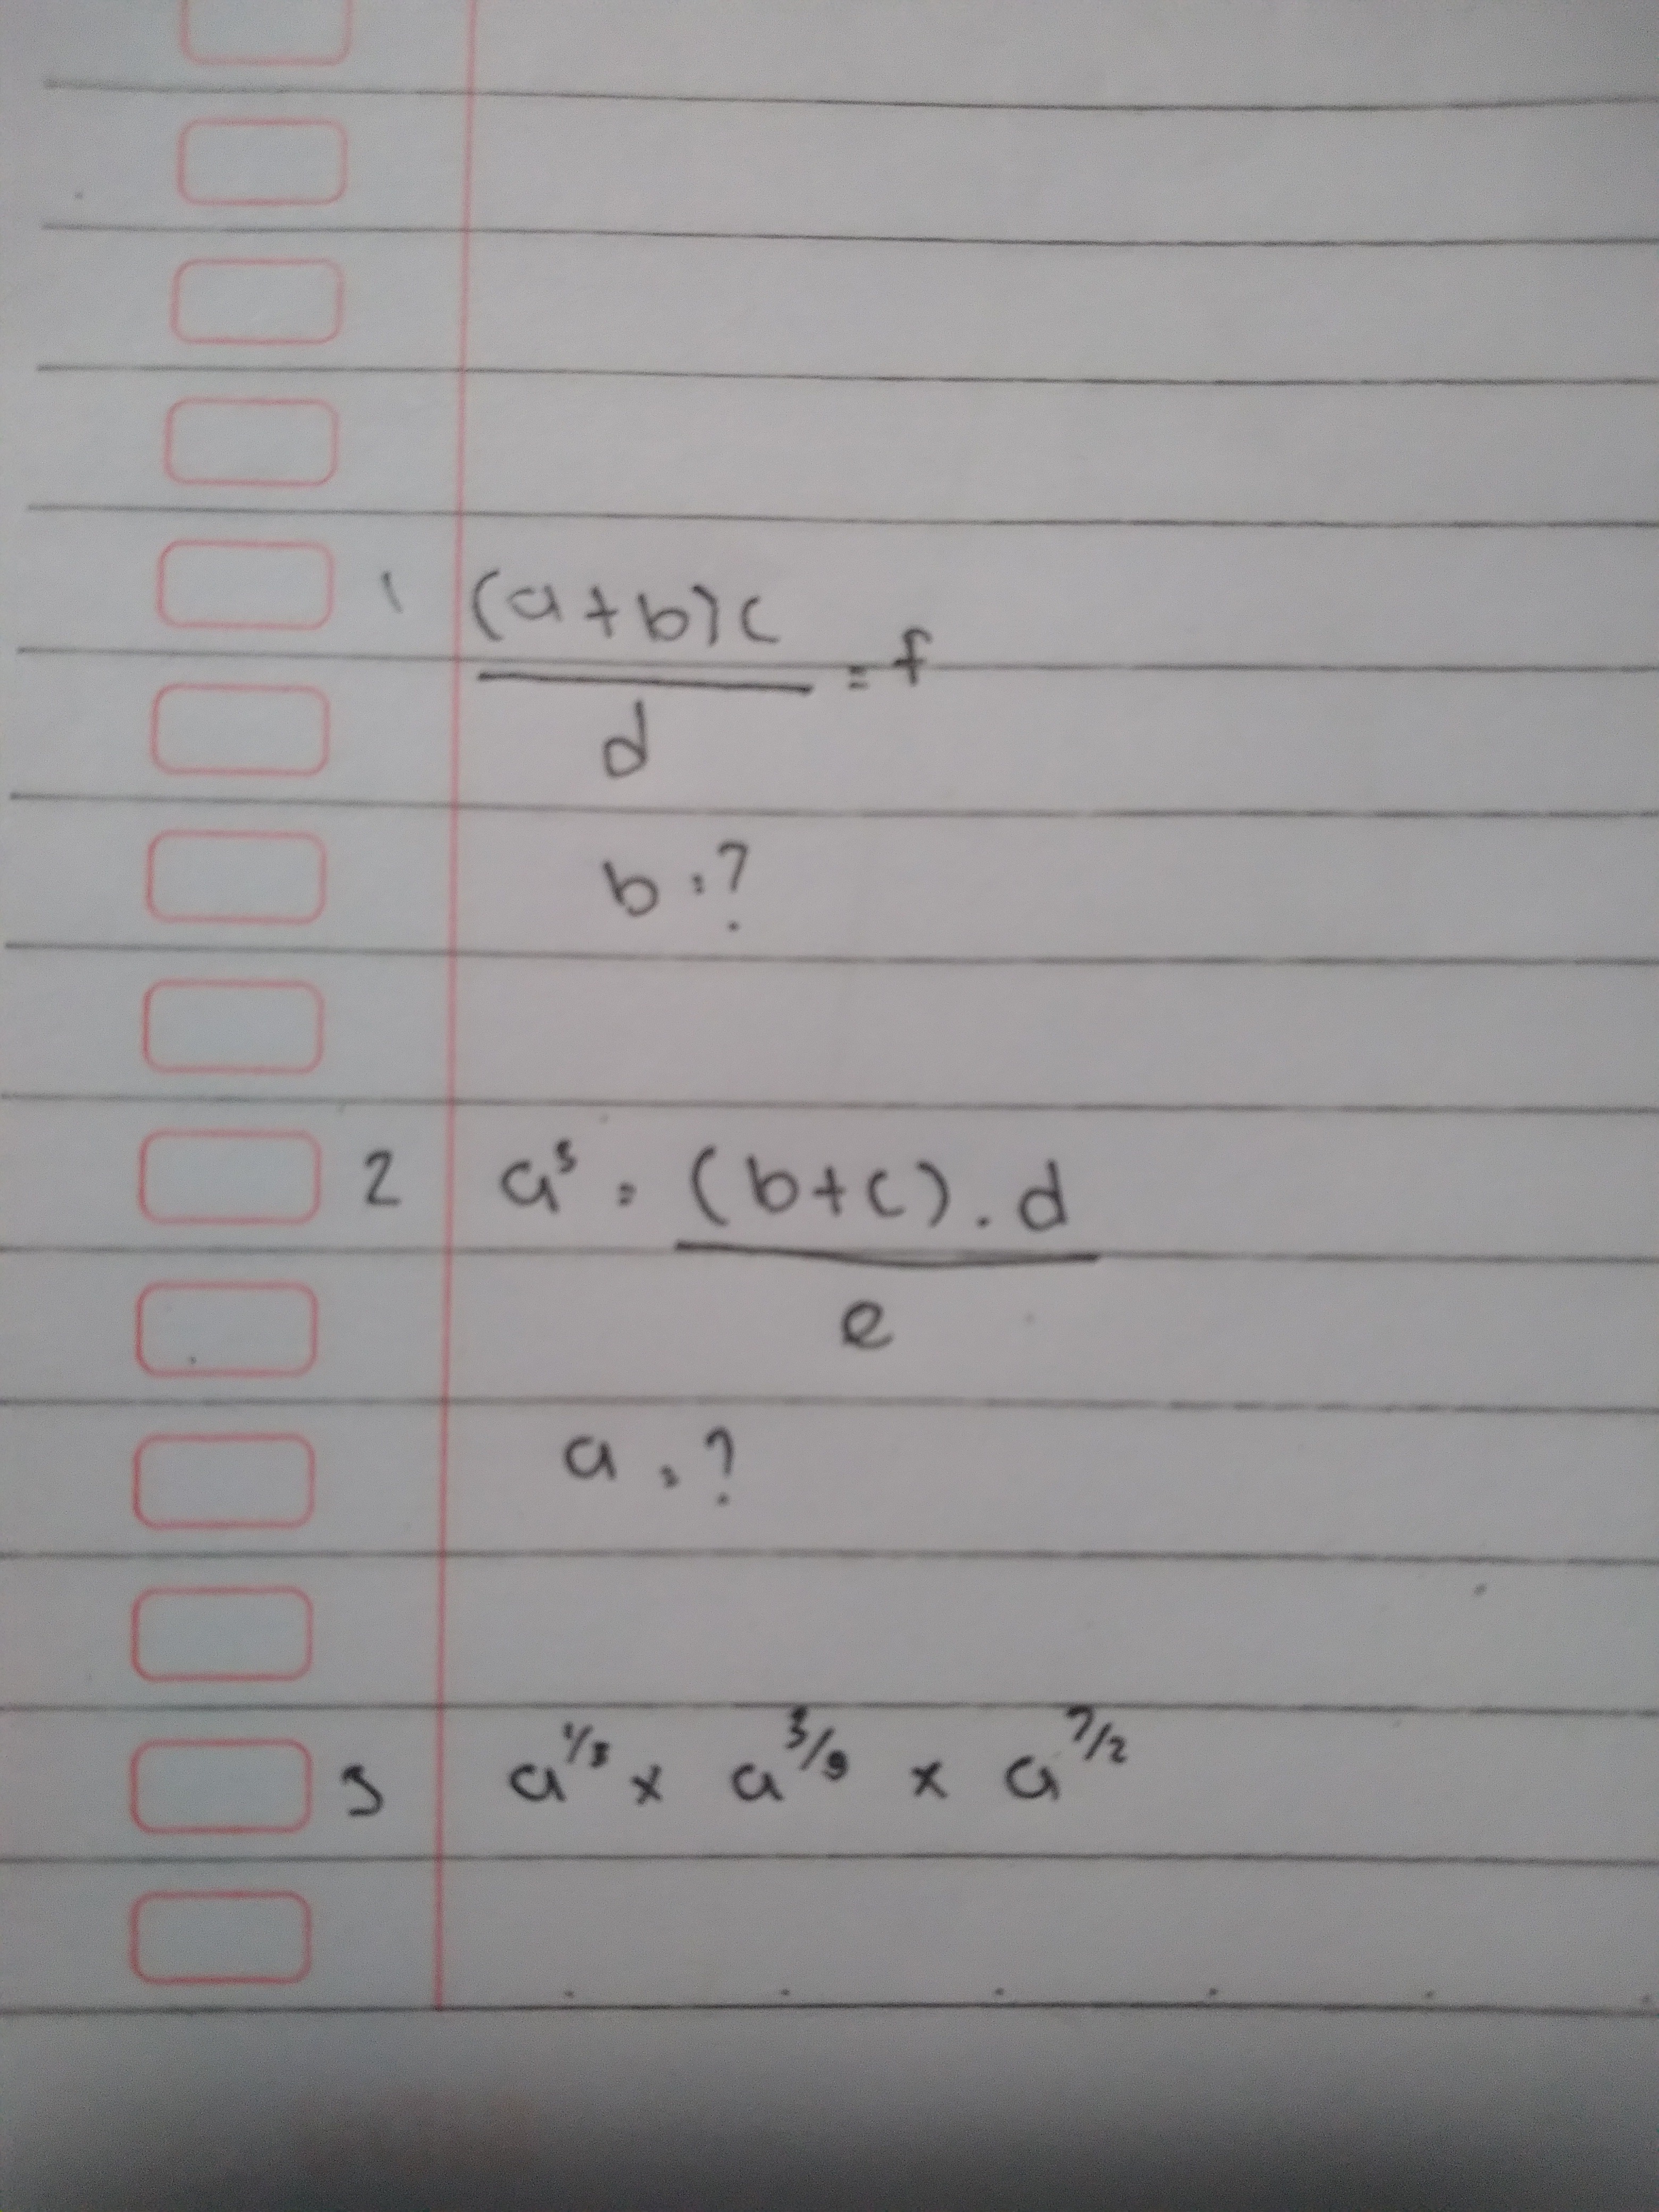 1 (a+b)c
= f
d
b = ?
2 a³ = (b+c) . d
e
a = ?
3 a^1/3 x a^3/9 x a^7/2